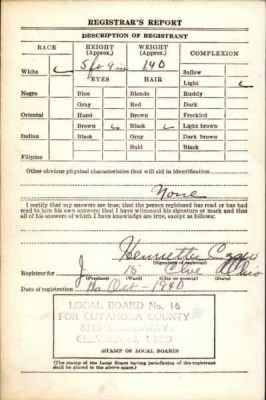 REGISTRAR'S REPORT
DESCRIPTION OF REGISTRANT
RACE HEIGHT (Approx.) WEIGHT (Approx.) COMPLEXION
5 ft 9 in 140 Sallow
White ✓ EYES HAIR Light ✓
Negro Blue Blonde Ruddy
Gray Red Dark
Oriental Hazel Brown Freckled
Brown ✓ Black ✓ Light brown
Indian Black Gray Dark brown
Bald Black
Filipino
Other obvious physical characteristics that will aid in identification
None
I certify that my answers are true; that the person registered has read or has had
read to him his own answers; that I have witnessed his signature or mark and that
all of his answers of which I have knowledge are true, except as follows:
Henrietta
(Signature of registrar)
Registrar for J 15 Cleve Ohio
(Precinct) (Ward) (City or county) (State)
Date of registration 16 Oct - 1940
LOCAL BOARD No. 16
FOR CUYAHOGA COUNTY
BROADWAY
CLEVELAND, OHIO
(STAMP OF LOCAL BOARD)
(The stamp of the Local Board having jurisdiction of the registrant
shall be placed in the above space.)